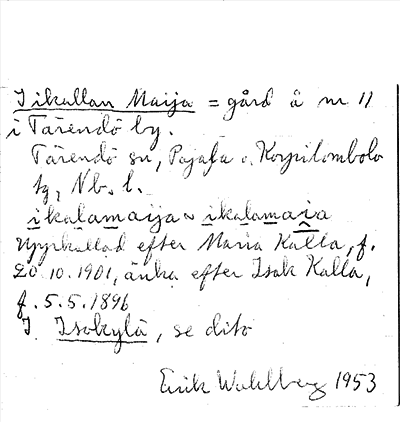 Iikallan Maija = gård å nr 11
i Tärendö by.
Tärendö sn, Pajala o. Korpilombolo
tg, Nb. l.
ikalamaija ~ ikalamaia
uppkallad efter Maria Kalla, f.
20.10.1901, änka efter Isak Kalla,
f. 5.5.1896
I. Isokylä, se dito
Erik Wahlberg 1953